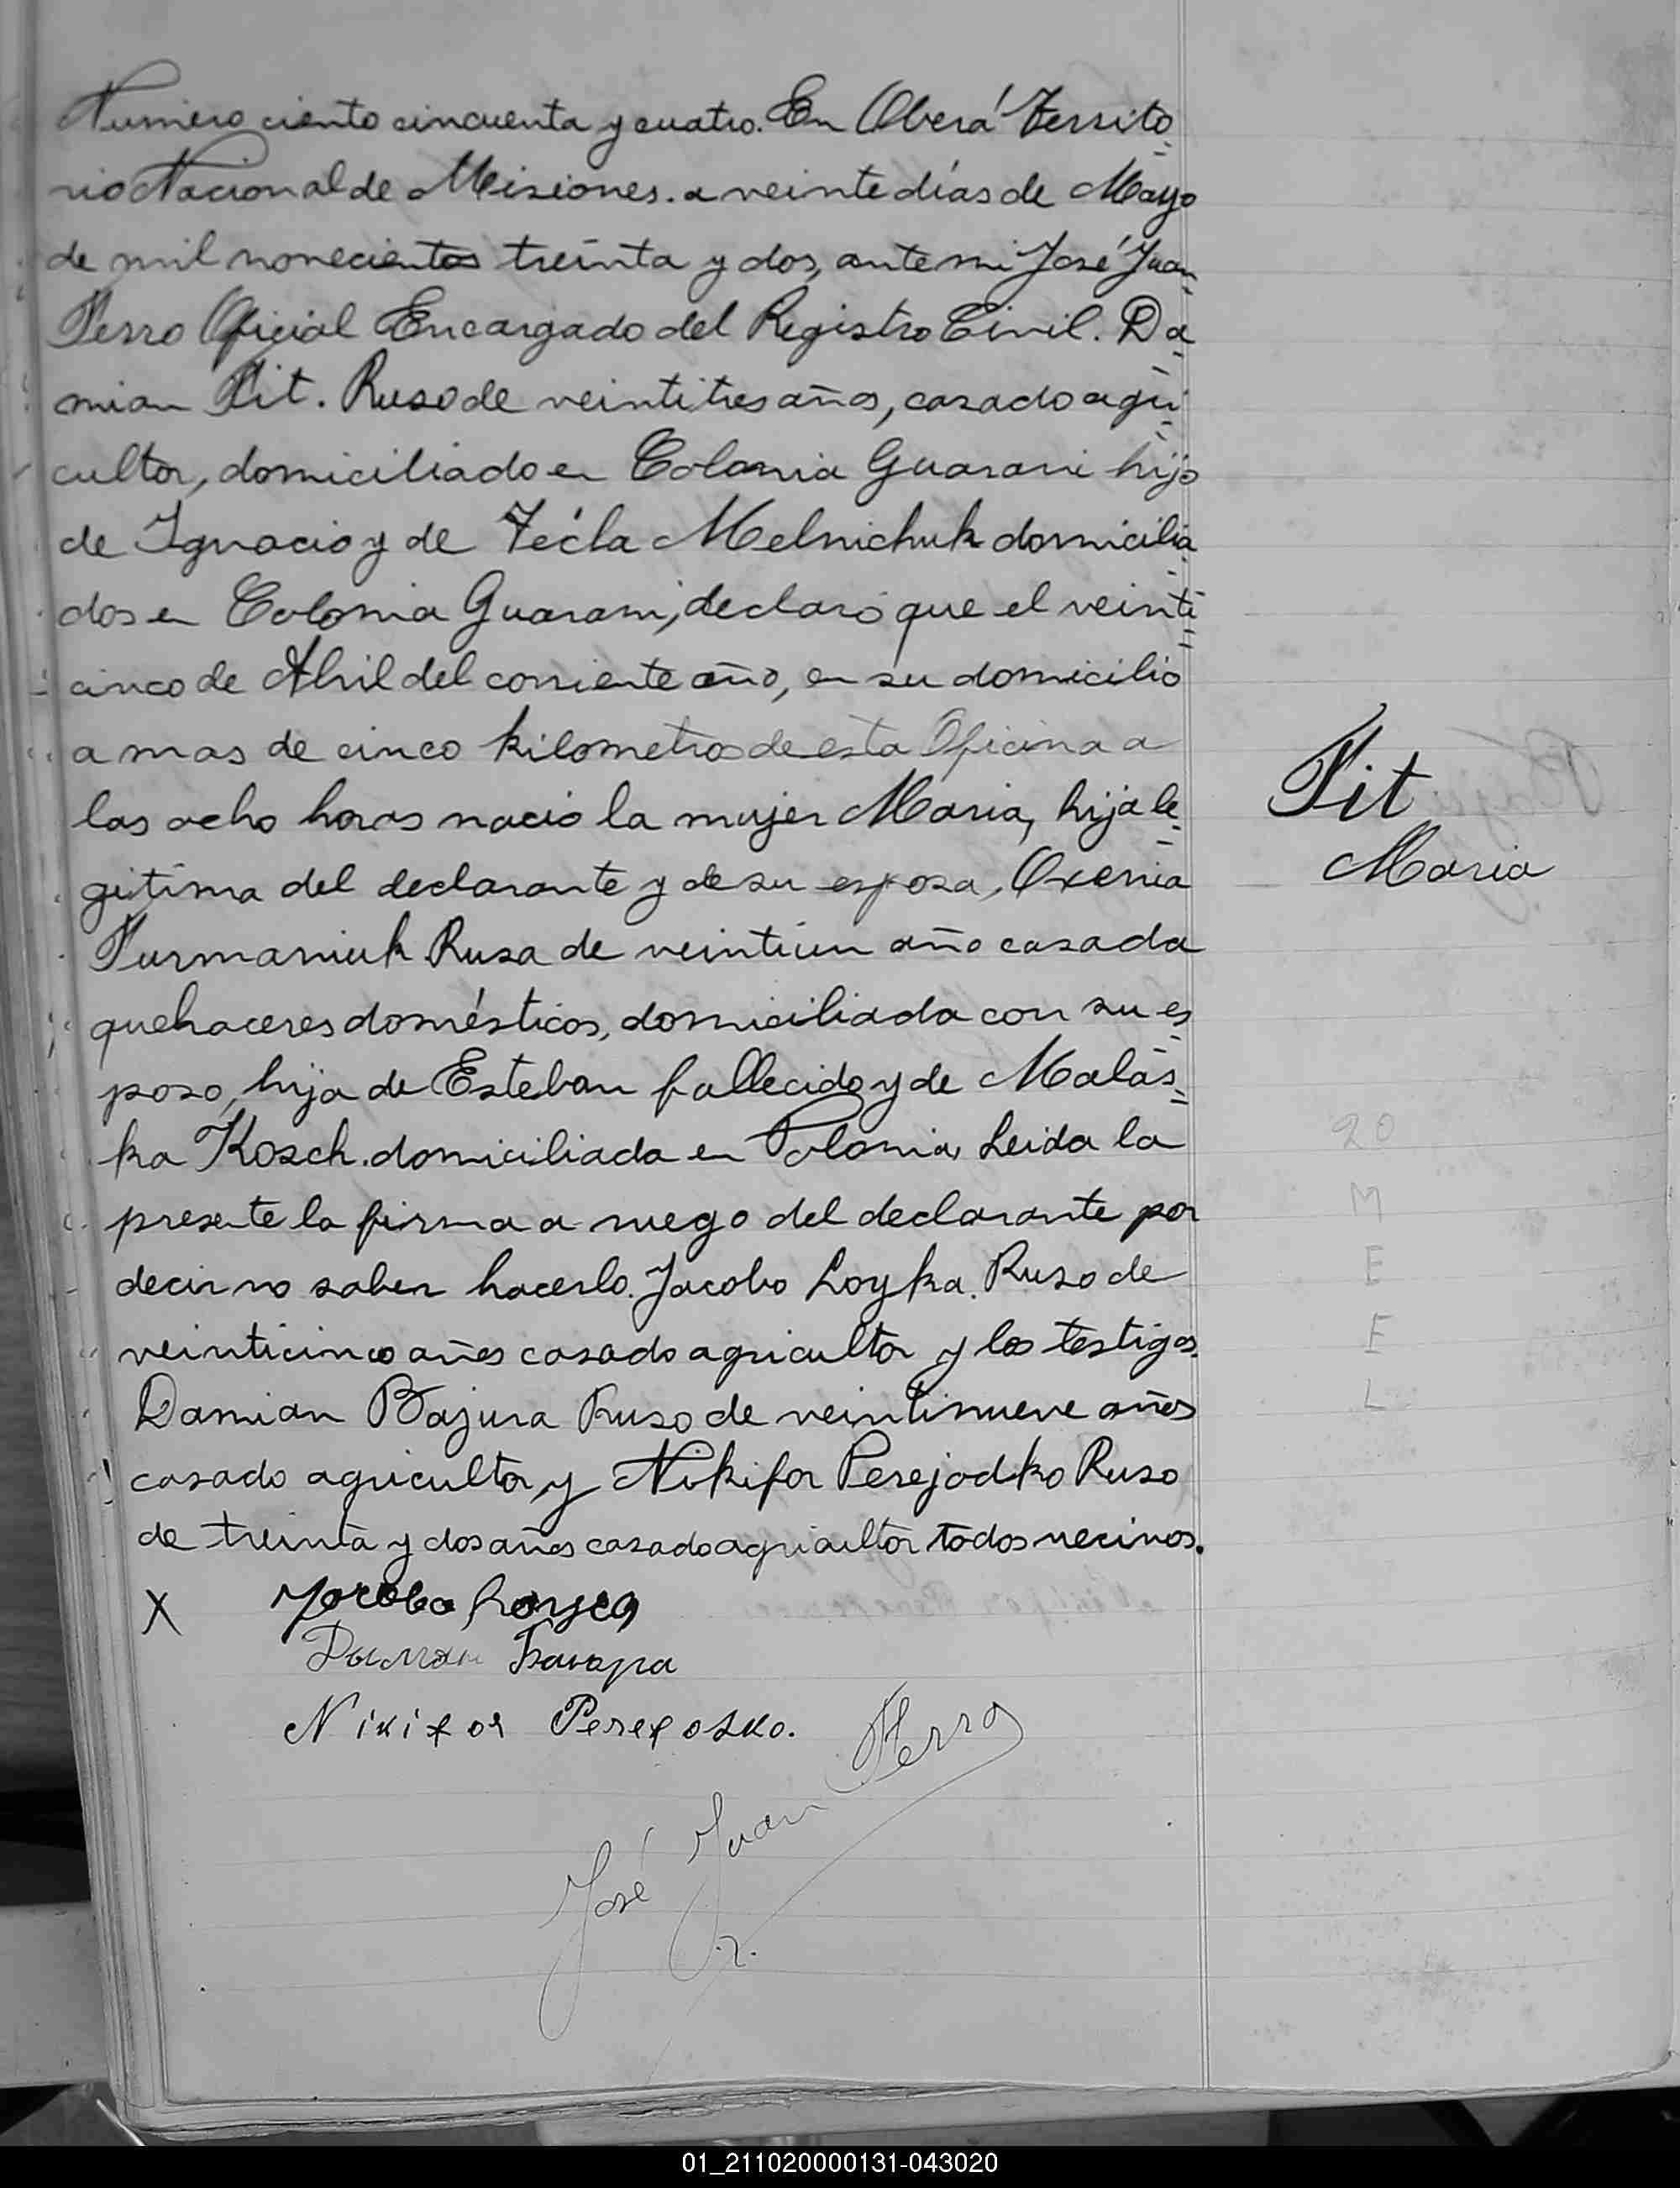 Numero ciento cincuenta y cuatro. En Oberá Territo=
rio Nacional de Misiones. a veinte días de Mayo
de mil novecientos treinta y dos, ante mi José Juan
Ferro Oficial Encargado del Registro Civil. Da=
mian Pit. Ruso de veintitres años, casado agri=
cultor, domiciliado en Colonia Guarani hijo
de Ignacio y de Técla Melnichuk domicilia=
dos en Colonia Guarani, declaró que el veinti=
cinco de Abril del corriente año, en su domicilio
a mas de cinco kilometros de esta Oficina a
las ocho horas nació la mujer Maria, hija le=
gitima del declarante y de su esposa, Oxenia
Furmaniuk Rusa de veintiun año casada
quehaceres domésticos, domiciliada con su es=
poso, hija de Esteban fallecido y de Malas=
ka Kosch. domiciliada en Polonia, Leida la
presente la firma a ruego del declarante por
decir no saber hacerlo. Jacobo Loyka. Ruso de
veinticinco años casado agricultor y los testigos.
Damian Bajura Ruso de veintinueve años
casado agricultor, y Nikifor Perejodko Ruso
de treinta y dos años casado agricultor todos vecinos.
Pit
Maria
20
M
E
E
L
X
Дамян Баюра
Nikifor
José Juan Ferro
01_211020000131-043020